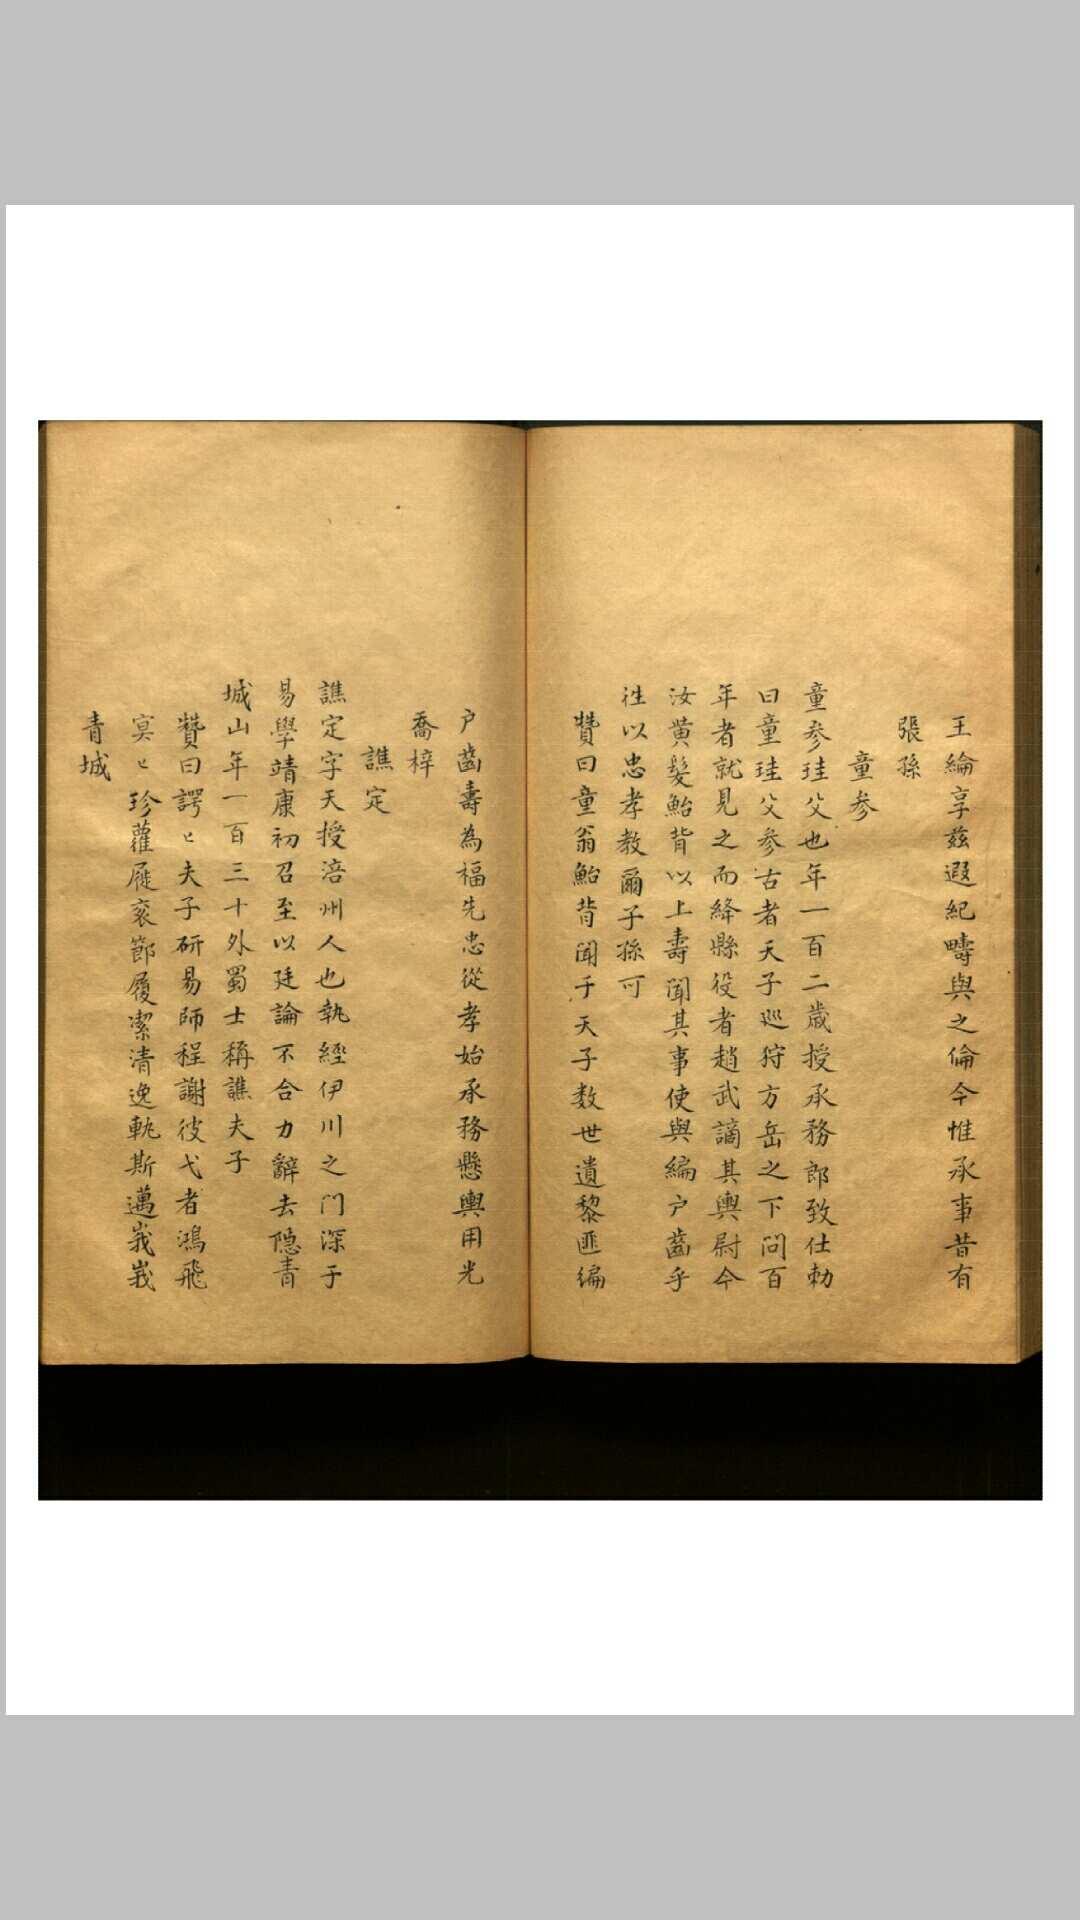 王綸享茲遐紀疇與之倫今惟承事昔有
張孫
童參
童參珪父也年一百二歲授承務郎致仕勑
曰童珪父參古者天子巡狩方岳之下問百
年者就見之而絳縣役者趙武謫其輿尉今
汝黄髮鮐背以上壽聞其事使與編户齒乎
往以忠孝教爾子孫可
贊曰童翁鮐背聞于天子数世遺黎匪編
户齒壽為福先忠從孝始承務懸輿用光
喬梓
譙定
譙定字天授涪州人也執經伊川之门深于
易學靖康初召至以廷論不合力辭去隠青
城山年一百三十外蜀士稱譙夫子
贊曰諤〻夫子研易師程謝彼弋者鴻飛
㝠〻珍蘿屣衮節履潔清逸軌斯邁峩峩
青城